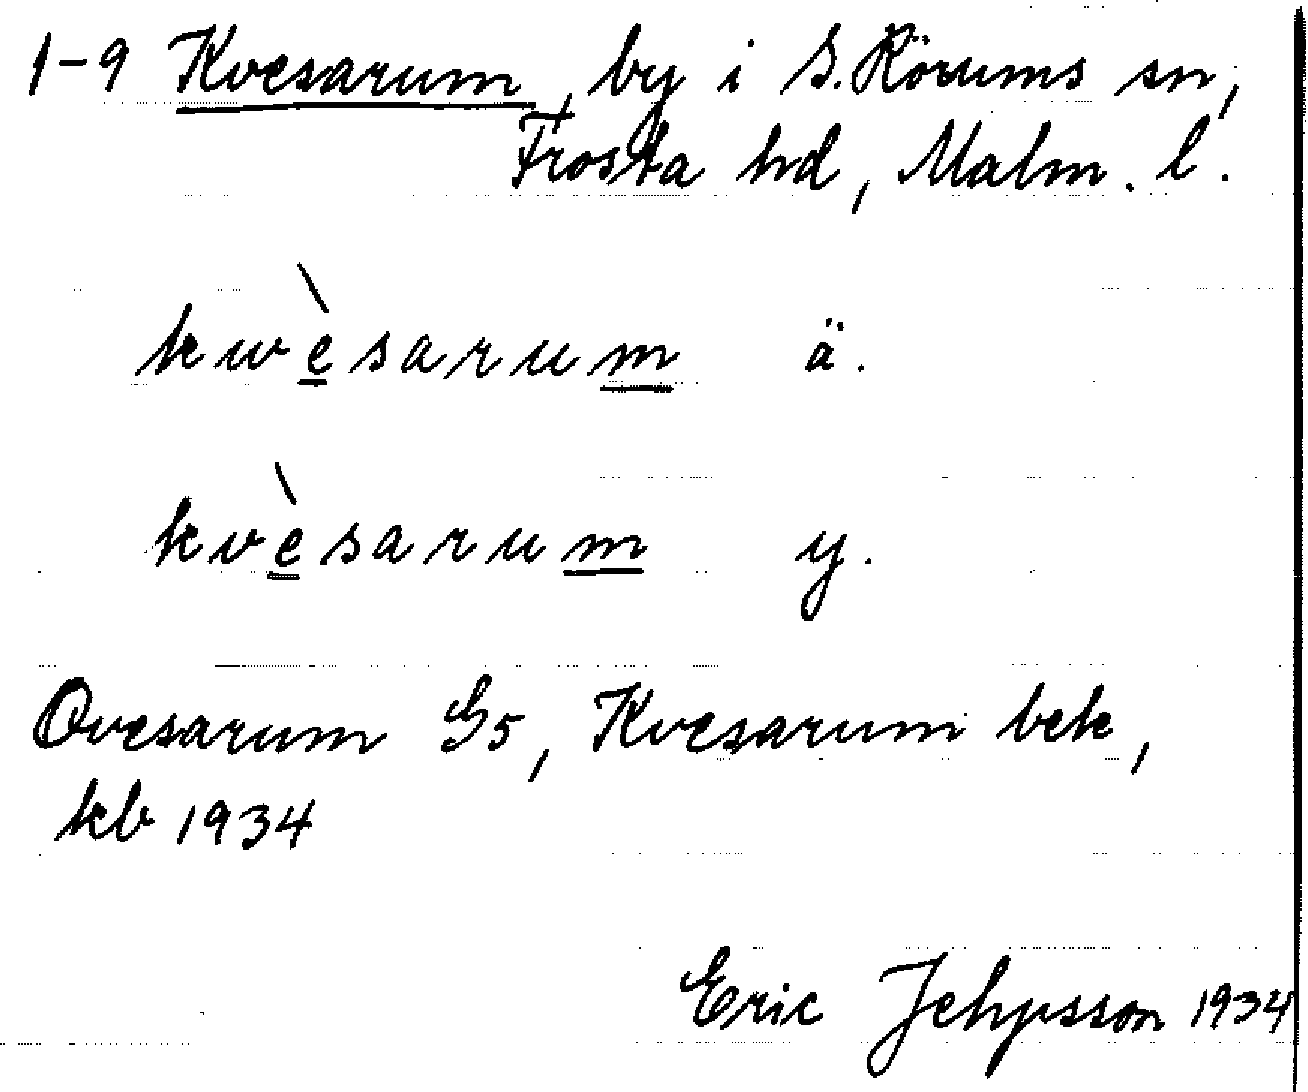 1-9 Kvesarum, by i S. Rörums sn,
Frosta hd, Malm. l.
kwèsarum ä.
kvèsarum y.
Qvesarum G5, Kvesarum bek,
kb 1934
Eric 1934